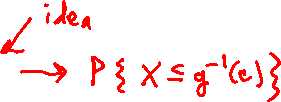 idea
→ P{ X ≤ g⁻¹(c)}